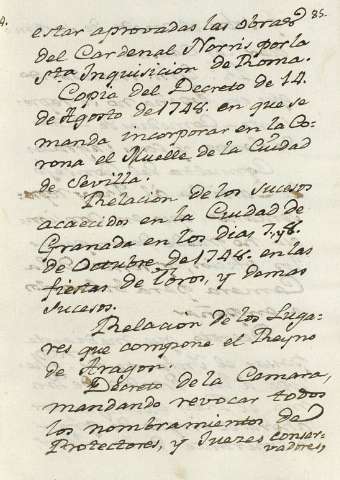 4.
85.
estar aprovadas las obras
del Cardenal Norris por la
Sta. Inquisicion de Roma.
Copia del Decreto de 14.
de Agosto de 1748. en que se
manda incorporar en la Co=
rona el Muelle de la Ciudad
de Sevilla.
Relacion de los sucesos
acaecidos en la Ciudad de
Granada en los dias 7, y 8.
de Octubre de 1748. en las
fiestas de Toros, y demas
sucesos.
Relacion de los Luga=
res que compone el Reyno
de Aragon.
Decreto de la Camara,
mandando revocar todos
los nombramientos de
Protectores, y Juezes conser=
vadores,